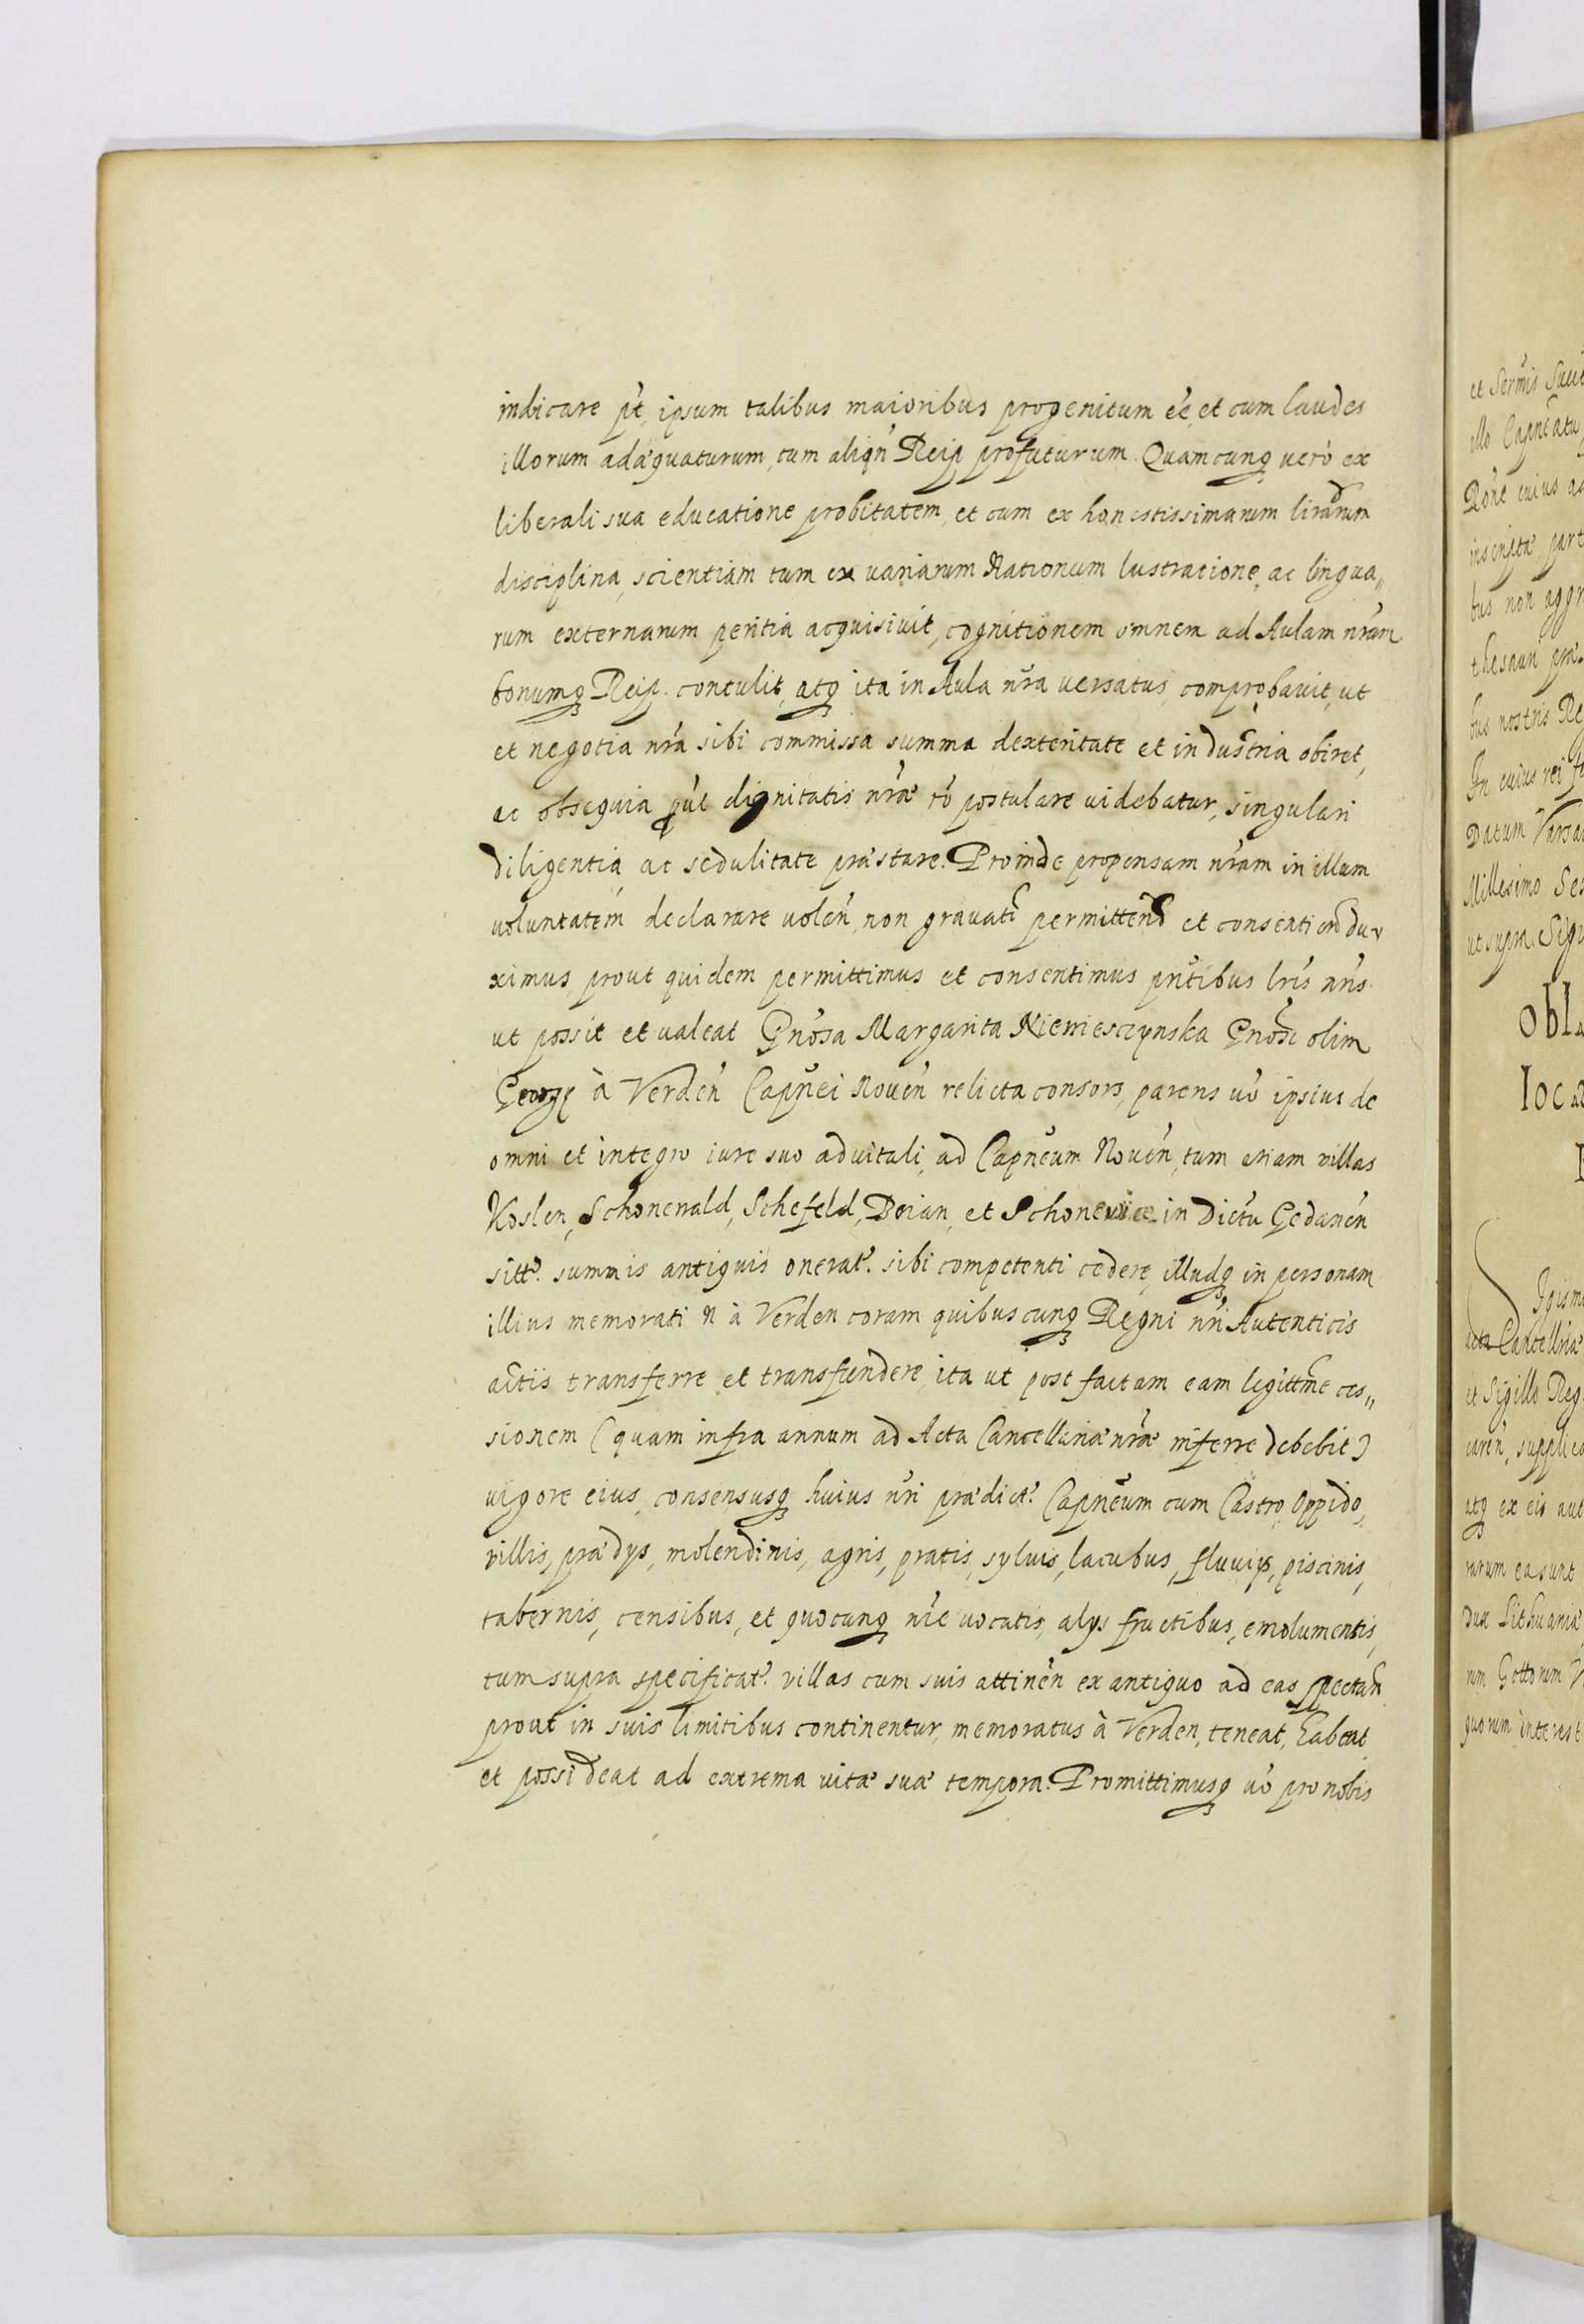 indicare pt, ipsum talibus maioribus progenitum eé, et cum laudes
illorum adæquaturum, tum aliqn Reip profuturum. Quamcunq vero ex
liberali sua educatione probitatem, et cum ex honestissimarum lirarum
disciplina, scientiam tum ex variarum Nationum lustratione, ac lingua„
rum externarum peritia acquisivit, cognitionem omnem ad Aulam nram
bonumq Reip. contulit, atq ita in Aula nra versatus, comprobavit, ut
et negotia nra sibi commissa summa dexteritate et industria obiret,
ac obsequia put dignitatis nræ ro postulare videbatur, singulari
diligentia ac sedulitate præstare. Proinde propensam nram in illum
voluntatem declarare volen, non gravati permittend et consentiend du„
ximus, prout quidem permittimus et consentimus pntibus lris nris
ut possit et valeat Gnosa Margarita Niemesczynska Gnosi olim
Georgy à Verden Capnei Noven relicta consors, parens vo ipsius de
omni et integro iure suo advitali, ad Capneum Noven, tum etiam villas
Koslen, Schonewald, Schefeld, Doian, et in Dictu Gedanen
sitt. summis antiquis onerat. sibi competenti cedere, illudq in personam
illius memorati N à Verden coram quibuscunq Regni nri Autenticis
actis transferre et transfundere, ita ut post factam eam legittme ces„
sionem (quam infra annum ad Acta Cancellariæ nræ inferre debebit)
vigore eius, consensusq huius nri prædict. Capneum cum Castro, Oppido,
villis, prædys, molendinis, agris, pratis, sylvis, lacubus, fluvijs, piscinis,
tabernis, censibus, et quocunq nie vocatis, alys fructibus, emolumentis,
tum supra specificat. villas cum suis attinen ex antiquo ad eas spectan
prout in suis limitibus continentur, memoratus à Verden, teneat, habeat
et possideat ad extrema vitæ suæ tempora. Promittimusq vo pro nobis
et Sermis
illo Capneatu
Rone cuius
inscriptæ part
bus non aggr
thesauri præ
bus nostris Re
In cuius rei fi
Datum Varsa
Millesimo Ses
ut supra. Sig
Obla
Ioca
Igism
acta Cancellriæ
et Sigillo Reg
caren, supplica
atq ex eis aut
rarum ea sunt
Dux Lithuaniæ
rum Gottorum V
quorum interest